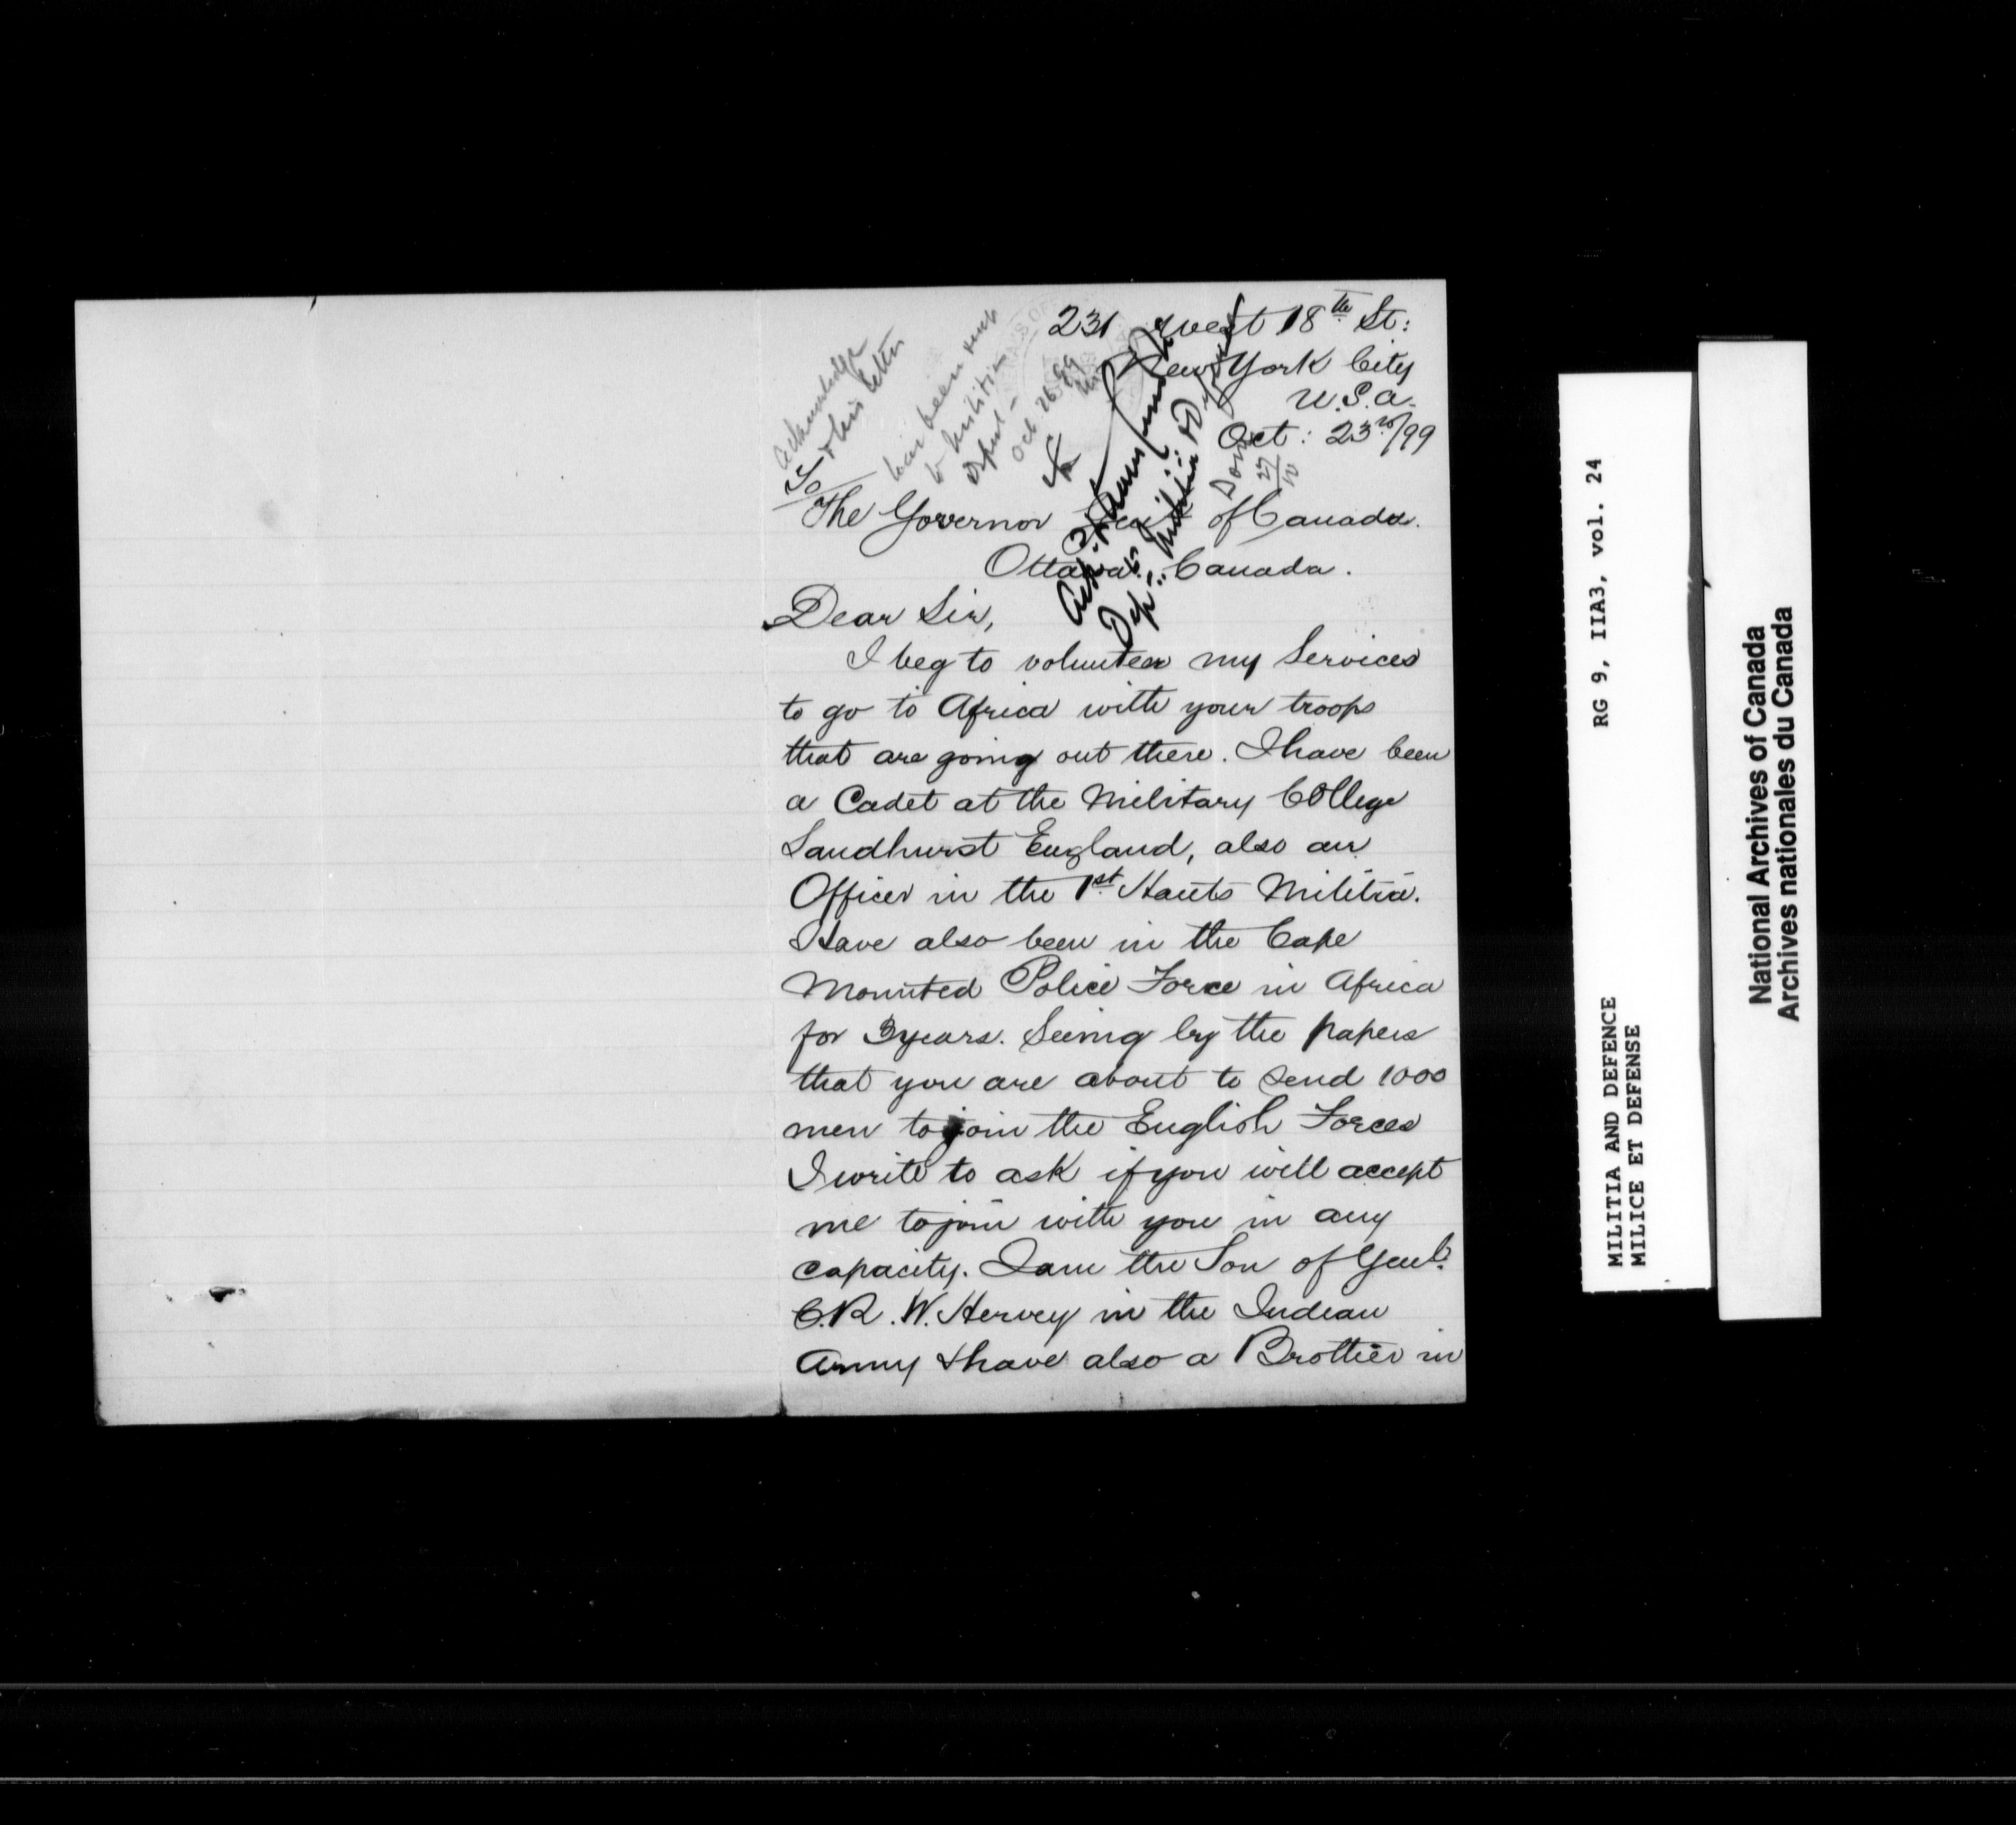 231 West 18th St:
New York City
U.S.A.
Oct: 23rd/99
Acknowledge
& this letter
has been sent
to Militia
Dept -
Oct 26 99
Done
27/10
Dep: Militia &
To/
The Governor of Canada.
Ottawa. Canada.
Dear Sir,
I beg to volunteer my Services
to go to Africa with your troops
that are going out there. I have been
a Cadet at the Military College
Sandhurst England, also an
Officer in the 1st Hants Militia.
Have also been in the Cape
Mounted Police Force in Africa
for 3 years. Seeing by the papers
that you are about to send 1000
men to join the English Forces
I write to ask if you will accept
me to join with you in any
capacity. I am the Son of Genl.
C.R.W. Hervey in the Indian
Army & have also a Brother in
RG 9, IIA3, vol. 24
MILITIA AND DEFENCE
MILICE ET DEFENSE
National Archives of Canada
Archives nationales du Canada